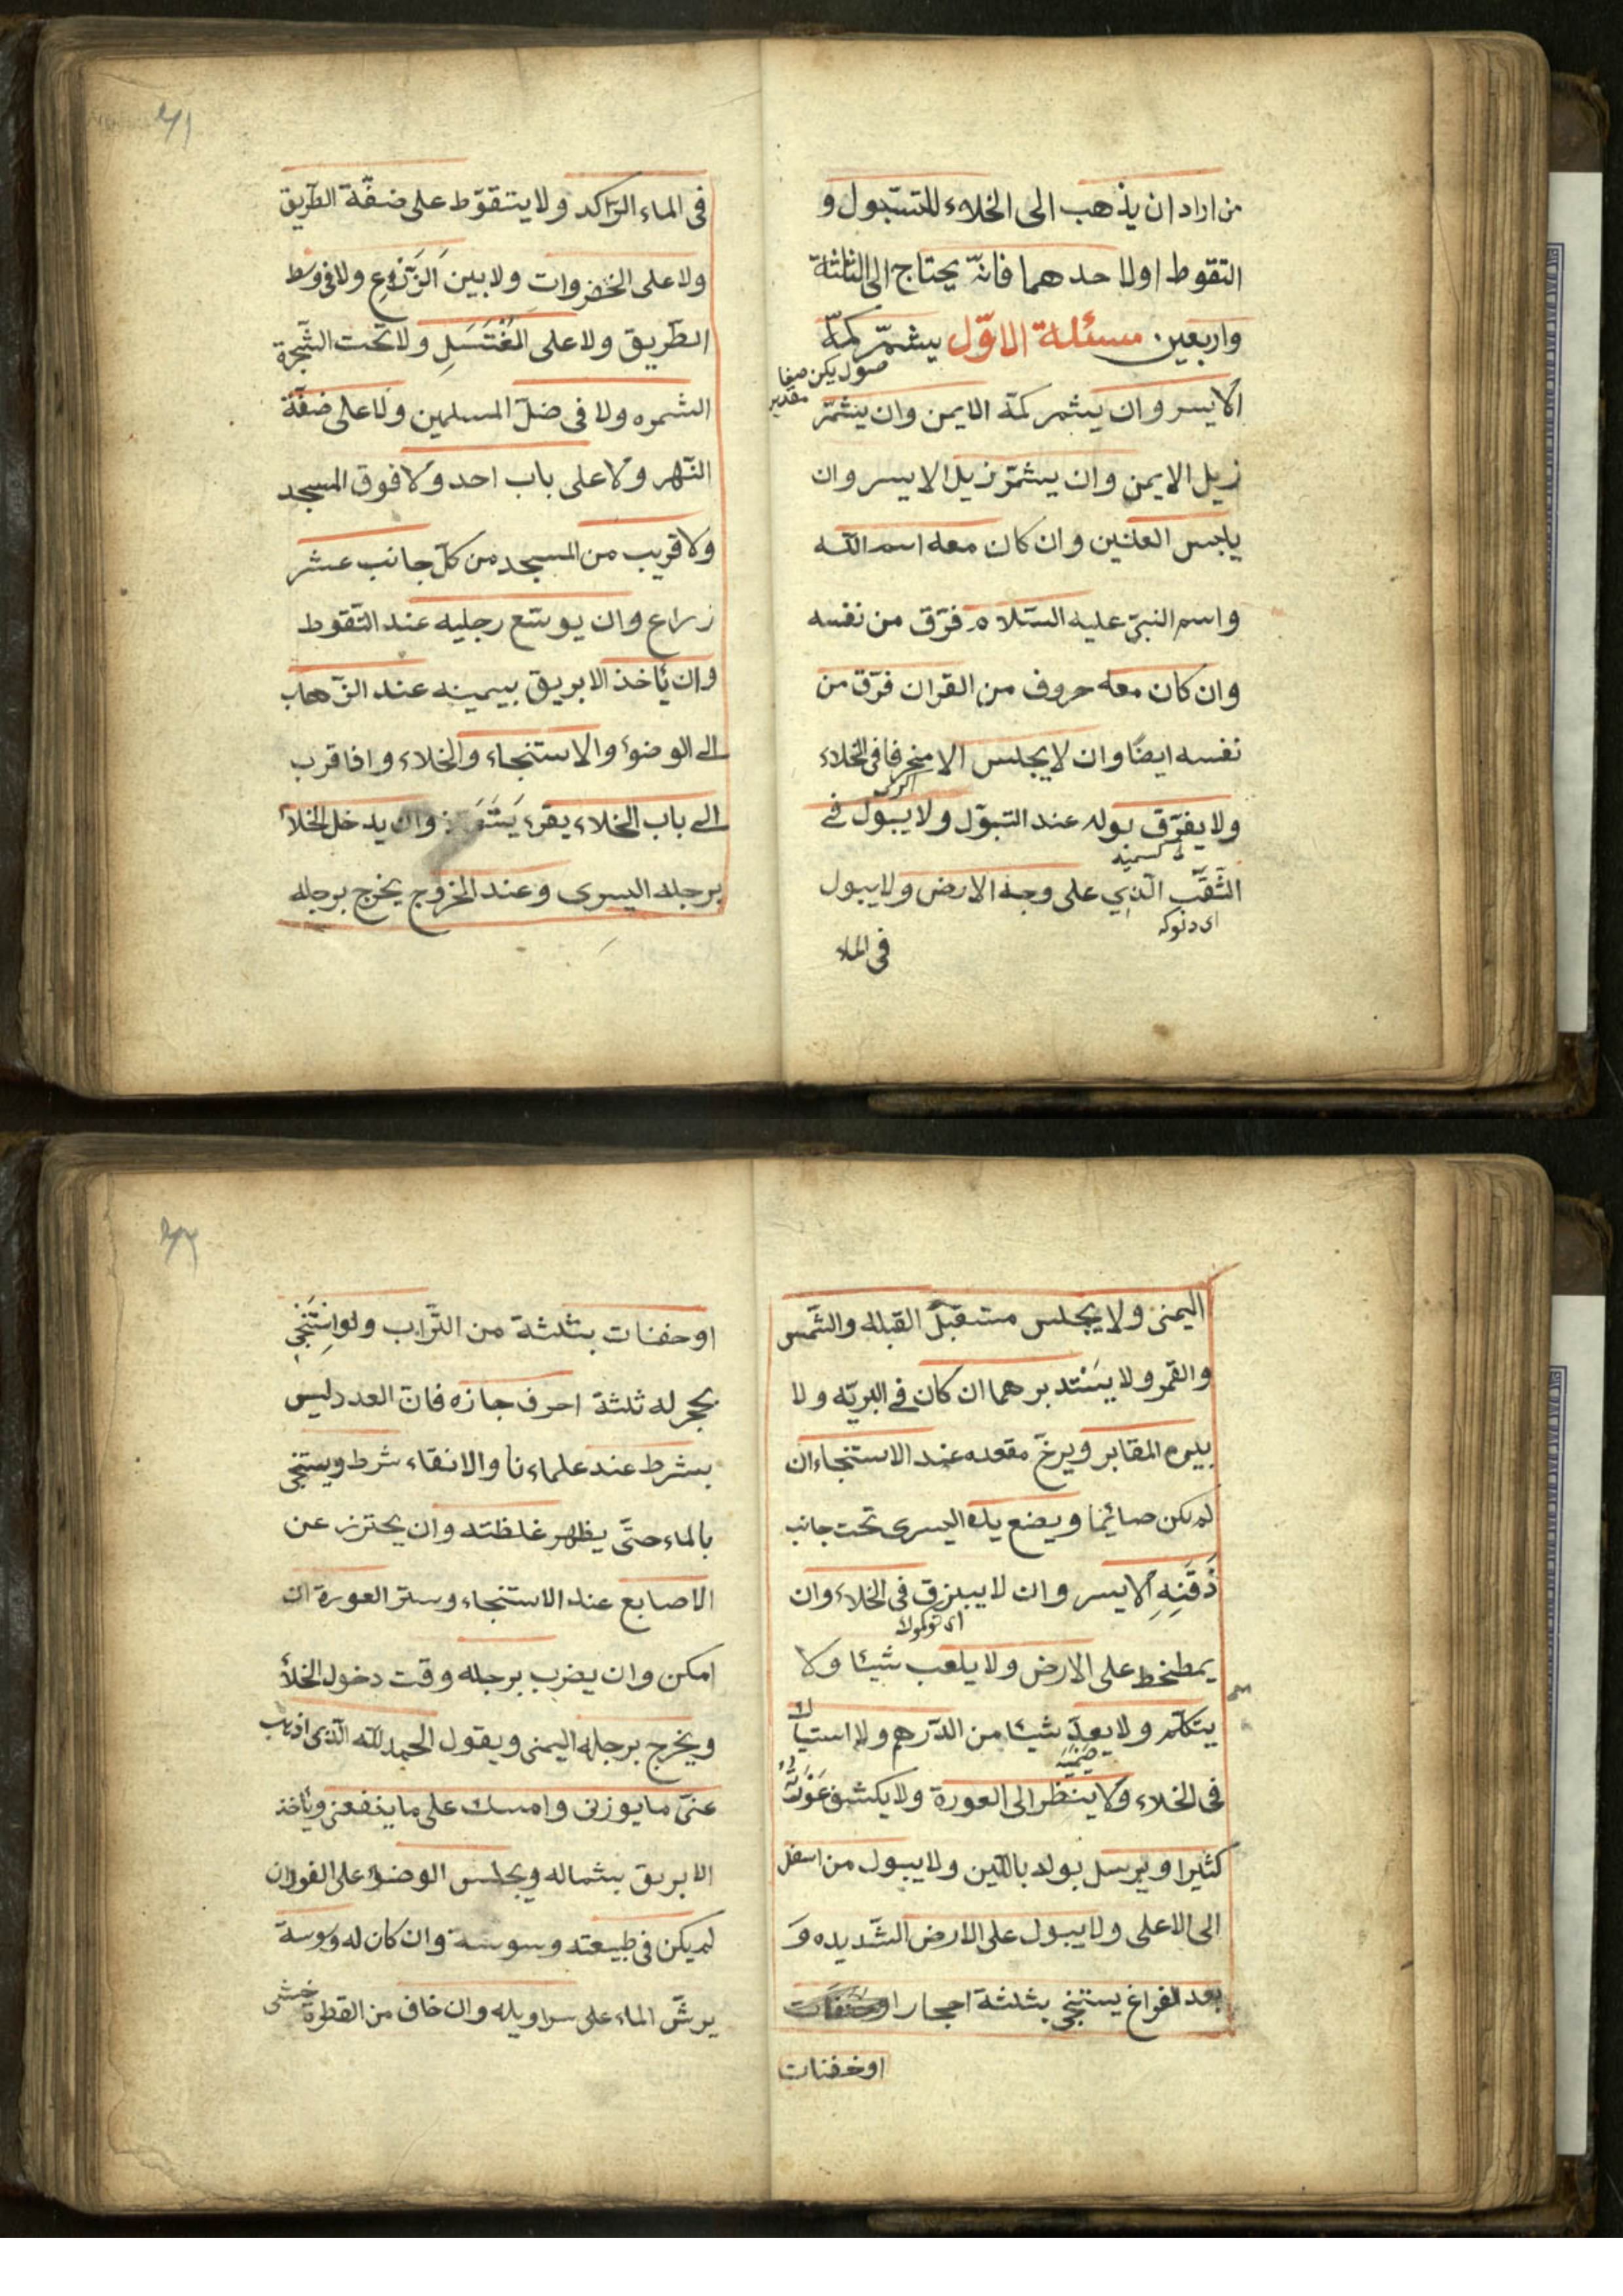 من اراد ان يذهب الى الخلاء للتبّول و
التقوط اولا حدهما فانّه يحتاج الى الثلثة
واربعين مسئلة الاوّل يشمّر كمّه
صول يكن صفا
الايسر وان يشمر كمّه الايمن وان يشمّر
زيل الايمن وان يشمّر زيل الايسر وان
يلبس النعلين وان كان معه اسم اللّه
واسم النبىّ عليه السّلام فرّق من نفسه
وان كان معه حروف من القران فرّق من
نفسه ايضًا وان لا يجلس الا منحرفا فى الخلاء
ولا يفرّق بوله عند التبوّل ولا يبول فى
الثّقب الّذى على وجه الارض ولا يبول
اى دلوكه
فى الماء
٧١
فى الماء الرّاكد ولا يتقوّط على ضفّة الطّريق
ولا على الخضروات ولا بين الزّروع ولا فى وسط
الطّريق ولا على المُغْتَسَلِ ولا تحت الشّجرة
الشمره ولا فى ضلّ المسلمين ولا على ضفّة
النّهر ولا على باب احد ولا فوق المسجد
ولا قريب من المسجد من كلّ جانب عشر
زراع وان يوسّع رجليه عند التّقوط
وان يأخذ الابريق بيمينه عند الزّهاب
الى الوضوء والاستنجاء والخلاء واذا قرب
الى باب الخلاء يقرء وان يدخل الخلاء
برجله اليسرى وعند الخروج يخرج برجله
اليمنى ولا يجلس مستقبل القبله والشّمس
والقمر ولا يستدبرهما ان كان فى البريّه ولا
يليرم المقابر ويرخّ مقعده عند الاستنجاء ان
لم يكن صائما ويضع يده اليسرى تحت جانب
ذَقَنِهِ الايسر وان لا يبزق فى الخلاء وان
اى توكولا
يمطخط على الارض ولا يلعب شيئا ولا
يتكلّم ولا يعدّ شيئا من الدّرهم ولا استيا
فى الخلاء ولا ينظر الى العورة ولا يكشف عَوْرَتَه
كثيرا ويرسل بوله باللّين ولا يبول من اسفل
الى الاعلى ولا يبول على الارض الشّديده وَ
بعد الفراغ يستنجى بثلثة احجار
اوحفنات
٧٢
اوحفنات بثلثة من التّراب ولو استنجى
بحجر له ثلثة احرف جازه فانّ العدد ليس
بشرط عند علماءنا والانقاء شرط ويستنجى
بالماء حتّى يظهر غلظته وان يحترز عن
الاصابع عند الاستنجاء وستر العورة ان
امكن وان يضرب برجله وقت دخول الخلأ
ويخرج برجله اليمنى ويقول الحمد للّه الّذى اذهب
عنّى ما يوزنى وامسك على ما ينفعنى ويأخذ
الابريق بشماله ويجلس الوضؤ على الفور ان
لم يكن فى طبيعته وسوسة وان كان له وسوسة
يرشّ الماء على سراويله وان خاف من القطرة خشى